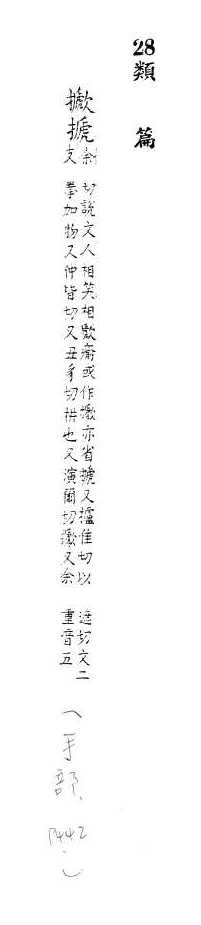 28類篇
擨搋余
支
切說文人相笑相歋瘉或作擨亦省搋又攄佳切以
拳加物又仲皆切又丑豸切析也又演爾切擨又余
遮切文二
重音五
(手部、P442.)